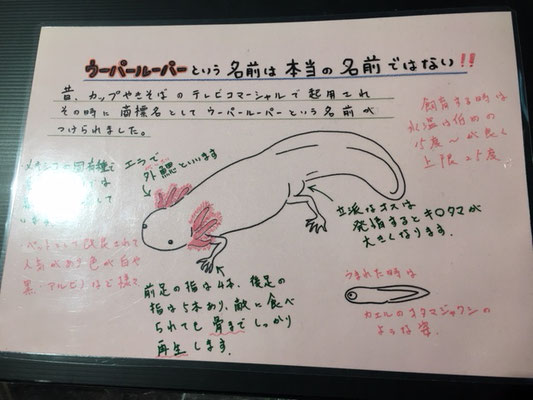 ウーパールーパーという名前は本当の名前ではない!!
昔、カップやきそばのテレビコマーシャルで起用され
その時に商標名としてウーパールーパーという名前が
つけられました。
飼育する時は
水温は低めの
15度~が良く
上限25度
メキシコ
エラで
外鰓といいます
ペットとして改良されて
人気があり色が白や
黒、アルビノなど様々
立派なオスは
発情するとキ〇タマが
大きくなります。
前足の指は4本、後足の
指は5本あり、敵に食べ
られても骨までしっかり
再生します。
うまれた時は
カエルのオタマジャクシの
ような姿。